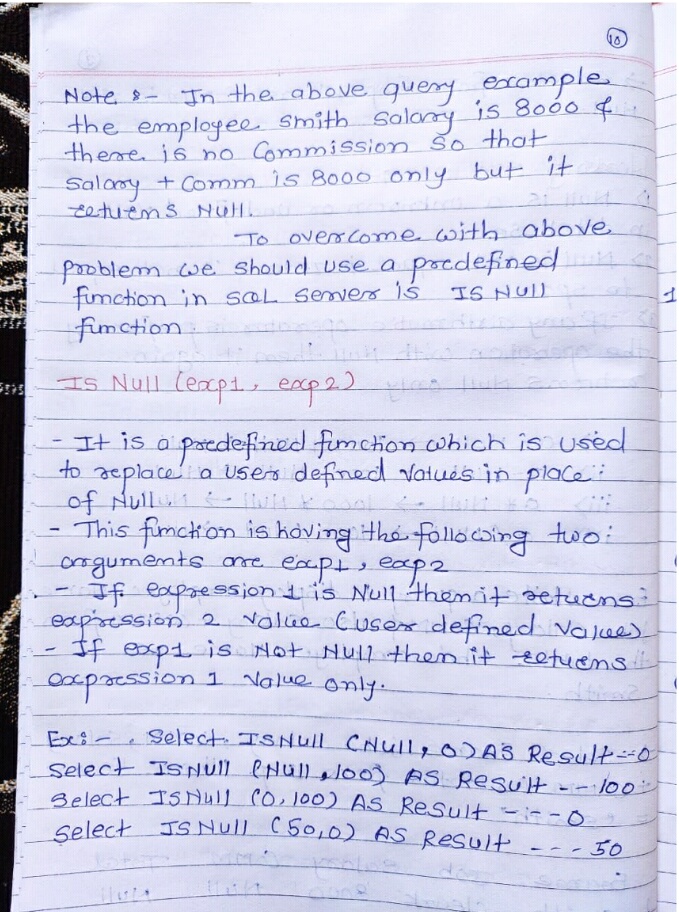 10
Note :- In the above query example
the employee smith salary is 8000 &
there is no Commission so that
salary + Comm is 8000 only but it
returns Null.
To overcome with above
problem we should use a predefined
function in SQL Server is IS Null
function
IS Null (exp1, exp2)
- It is a predefined function which is used
to replace a user defined values in place
of Null.
- This function is having the following two
arguments are exp1, exp2
- If expression 1 is Null then it returns
expression 2 value (user defined value)
- If exp1 is Not Null then it returns
expression 1 value only.
Ex:- . Select ISNull (Null, 0) AS Result --0
Select ISNull (Null, 100) AS Result -- 100
Select ISNull (0, 100) AS Result --- 0
Select ISNull (50,0) AS Result --- 50